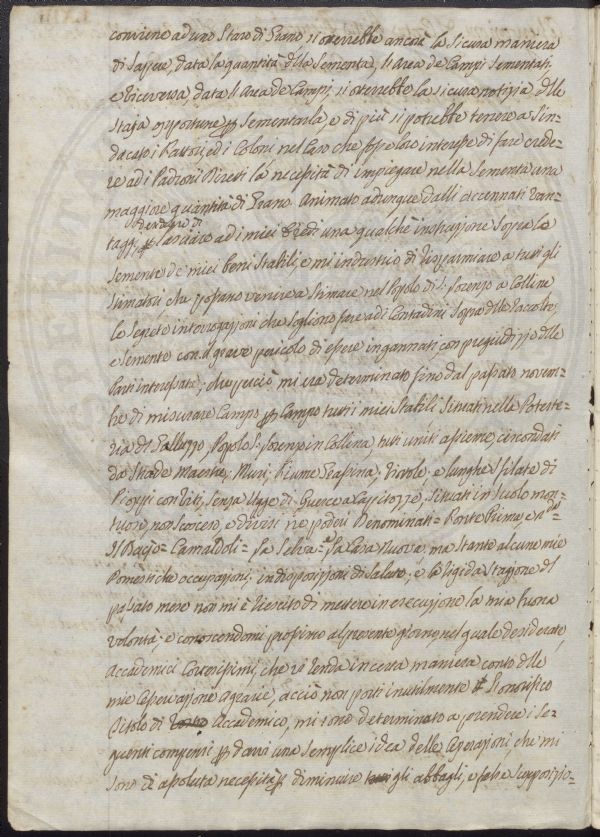 conviene ad uno Staro di Grano si otterrebbe ancora la sicura maniera
di sapere, data la quantità della Sementa, l'Area de Campi sementati
e viceversa, data l'Area de Campi, si otterrebbe la sicura notizia delle
Staja opportune per sementarla, e di più si potrebbe tenere a sin-
dacato i Fattori, ed i Coloni nel caso che fosse loro interesse di fare crede-
re ad i Padroni Diretti la necessità di impiegare nella Sementa una
maggiore quantità di Grano. Animato adunque dalli accennati van-
taggi, lasciare ad i miei Eredi una qualche instruzione sopra le
semente de miei beni stabili, e mi industrio di risparmiare a tutti gli
Stimatori, che possano venire a stimare nel Popolo di S: Lorenzo a Colline
le segrete interrogazioni che sogliono fare ad i Contadini sopra delle raccolte,
e semente con grave pericolo di essere ingannati con pregiudizio delle
Parti interessate; che perciò mi era determinato fino dal passato novem-
bre di misurare Campo per Campo tutti i miei Stabili situati nella Poteste-
ria del Galluzzo, Popolo S: Lorenzo in Collina, tutti uniti assieme, circondati
da Strade Maestre, Muri, Fiume, Viottole, e lunghe sfilate di
Pioppi con Viti, senza Usage di Querce a Capitozze, situati in suolo mon-
tuoso, non scosceso, e divisi ne poderi Denominati = Ponte Primo, e 2do =
Il Bagio = Camaldoli = La Selva = La Casa Nuova, ma stante alcune mie
Domestiche occupazioni, indisposizioni di salute, e la rigida stagione del
passato mese non mi è riescito di mettere in esecuzione la mia buona
volontà; e conoscendomi prossimo al presente giorno, nel quale desiderate,
Accademici Cortesissimi, che vi renda in certa maniera conto delle
mie osservazione agrarie, acciò non porti inutilmente l'onorifico
titolo di Accademico, mi sono determinato a prendere i se-
guenti compensi per darvi una semplice idea delle Operazioni, che mi
sono di assoluta necessità per diminuire gli abbagli, e false supposizio-